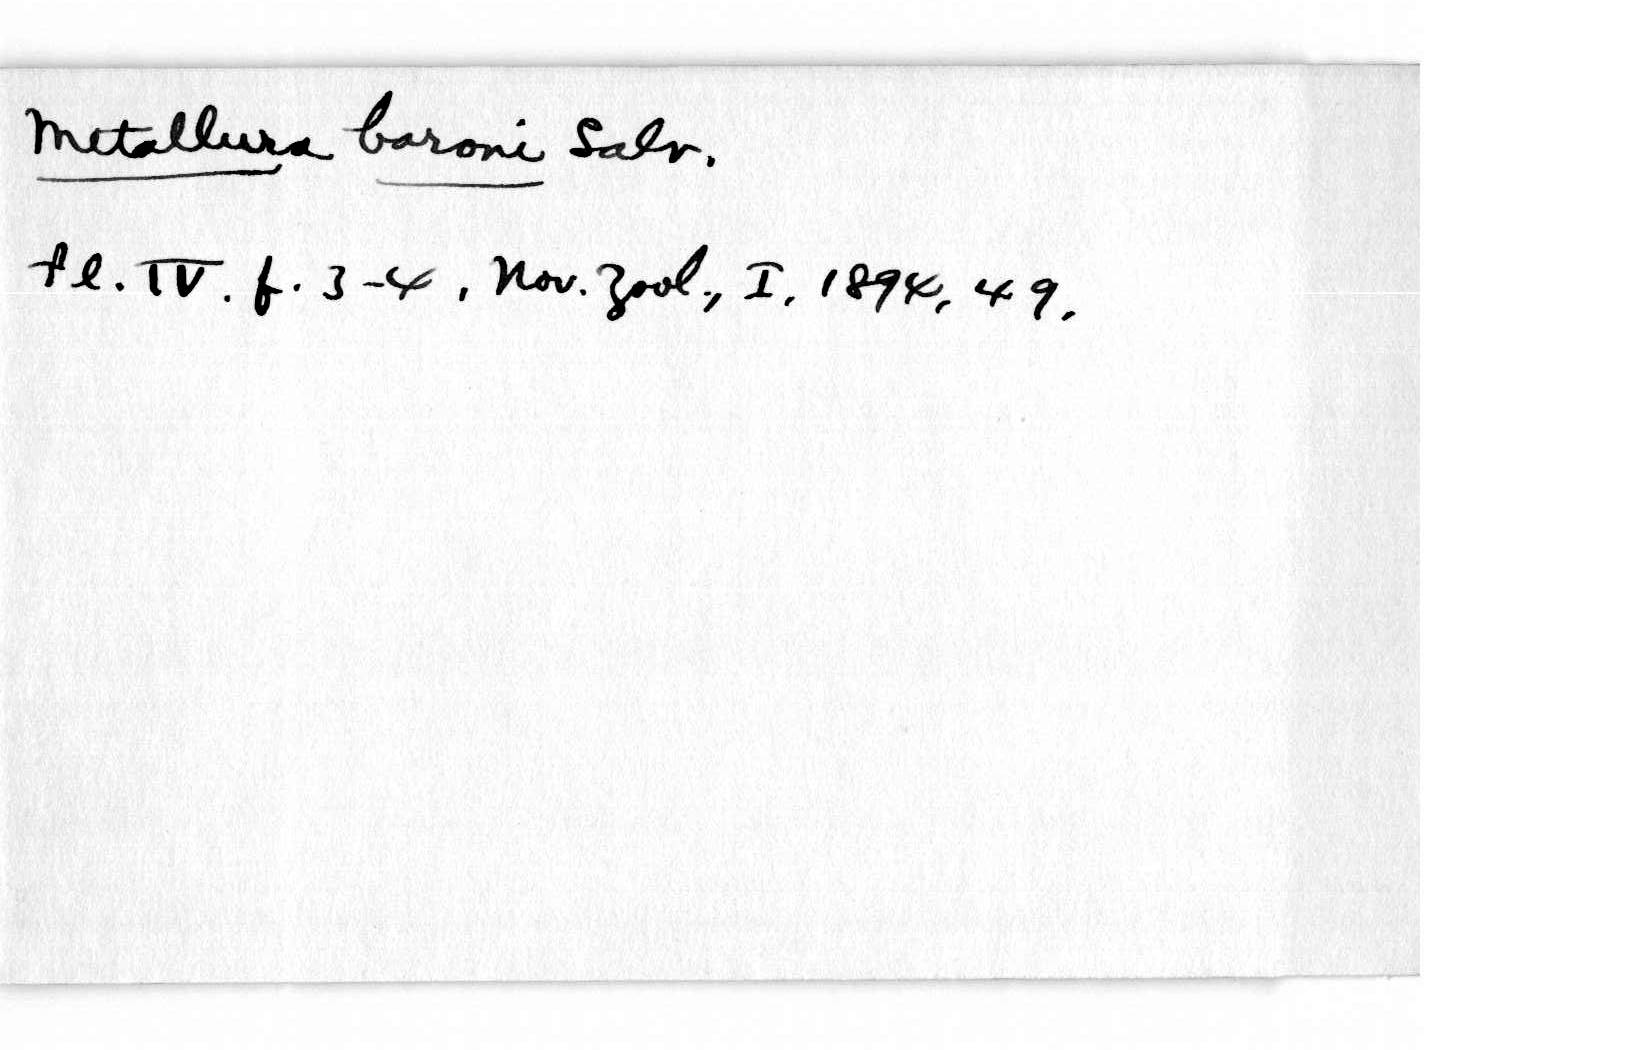 Metallura baroni Salv.
Pl. IV. f. 3-4, Nov. Zool., I, 1894, 49.